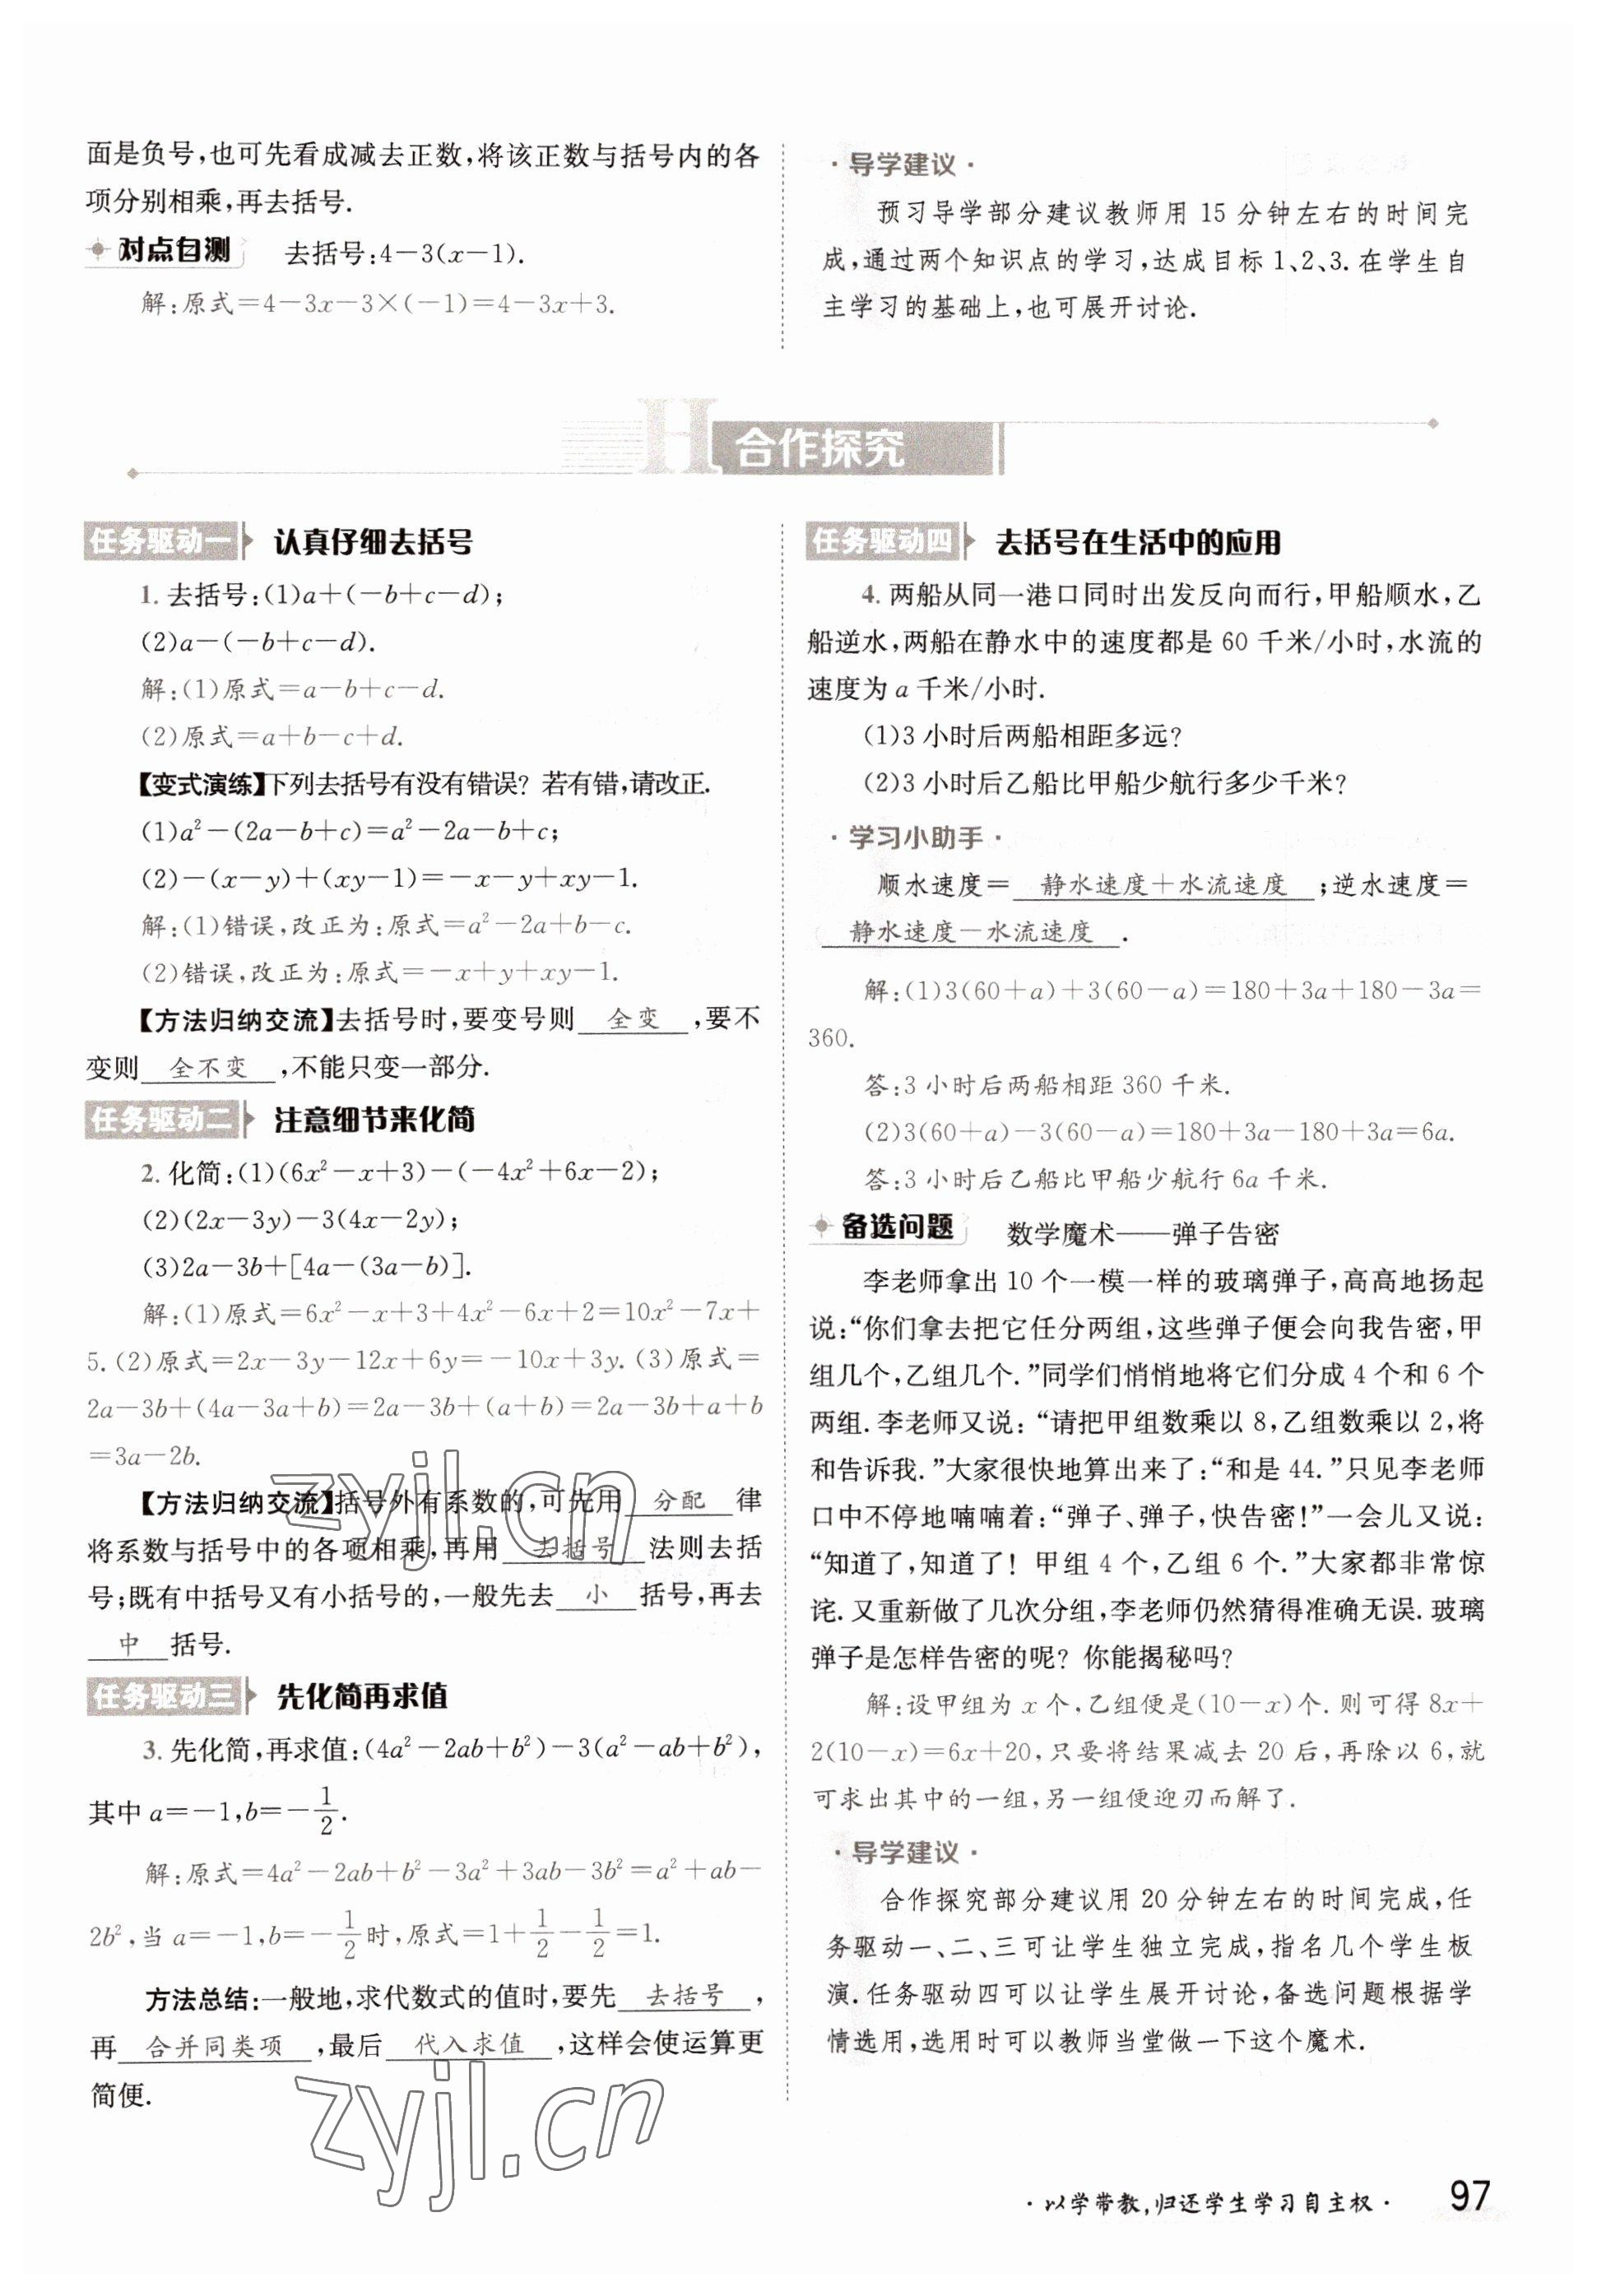 面是负号,也可先看成减去正数,将该正数与括号内的各
项分别相乘,再去括号.
对点自测 去括号:4-3(x-1).
解:原式=4-3x-3×(-1)=4-3x+3.
·导学建议·
预习导学部分建议教师用15分钟左右的时间完
成,通过两个知识点的学习,达成目标1、2、3.在学生自
主学习的基础上,也可展开讨论.
H 合作探究
任务驱动一 认真仔细去括号
1. 去括号:(1)a+(-b+c-d);
(2)a-(-b+c-d).
解:(1)原式=a-b+c-d.
(2)原式=a+b-c+d.
【变式演练】下列去括号有没有错误?若有错,请改正.
(1)a²-(2a-b+c)=a²-2a-b+c;
(2)-(x-y)+(xy-1)=-x-y+xy-1.
解:(1)错误,改正为:原式=a²-2a+b-c.
(2)错误,改正为:原式=-x+y+xy-1.
【方法归纳交流】去括号时,要变号则 全变 ,要不
变则 全不变 ,不能只变一部分.
任务驱动二 注意细节来化简
2. 化简:(1)(6x²-x+3)-(-4x²+6x-2);
(2)(2x-3y)-3(4x-2y);
(3)2a-3b+[4a-(3a-b)].
解:(1)原式=6x²-x+3+4x²-6x+2=10x²-7x+
5.(2)原式=2x-3y-12x+6y=-10x+3y.(3)原式=
2a-3b+(4a-3a+b)=2a-3b+(a+b)=2a-3b+a+b
=3a-2b.
【方法归纳交流】括号外有系数的,可先用 分配 律
将系数与括号中的各项相乘,再用 去括号 法则去括
号;既有中括号又有小括号的,一般先去 小 括号,再去
中 括号.
任务驱动三 先化简再求值
3. 先化简,再求值:(4a²-2ab+b²)-3(a²-ab+b²),
其中a=-1,b=-1/2.
解:原式=4a²-2ab+b²-3a²+3ab-3b²=a²+ab-
2b²,当a=-1,b=-1/2时,原式=1+1/2-1/2=1.
方法总结:一般地,求代数式的值时,要先 去括号 ,
再 合并同类项 ,最后 代入求值 ,这样会使运算更
简便.
任务驱动四 去括号在生活中的应用
4. 两船从同一港口同时出发反向而行,甲船顺水,乙
船逆水,两船在静水中的速度都是60千米/小时,水流的
速度为a千米/小时.
(1)3小时后两船相距多远?
(2)3小时后乙船比甲船少航行多少千米?
·学习小助手·
顺水速度= 静水速度+水流速度 ;逆水速度=
静水速度-水流速度 .
解:(1)3(60+a)+3(60-a)=180+3a+180-3a=
360.
答:3小时后两船相距360千米.
(2)3(60+a)-3(60-a)=180+3a-180+3a=6a.
答:3小时后乙船比甲船少航行6a千米.
备选问题 数学魔术——弹子告密
李老师拿出10个一模一样的玻璃弹子,高高地扬起
说:“你们拿去把它任分两组,这些弹子便会向我告密,甲
组几个,乙组几个.”同学们悄悄地将它们分成4个和6个
两组.李老师又说:“请把甲组数乘以8,乙组数乘以2,将
和告诉我.”大家很快地算出来了:“和是44.”只见李老师
口中不停地喃喃着:“弹子、弹子,快告密!”一会儿又说:
“知道了,知道了!甲组4个,乙组6个.”大家都非常惊
诧.又重新做了几次分组,李老师仍然猜得准确无误.玻璃
弹子是怎样告密的呢?你能揭秘吗?
解:设甲组为x个,乙组便是(10-x)个.则可得8x+
2(10-x)=6x+20,只要将结果减去20后,再除以6,就
可求出其中的一组,另一组便迎刃而解了.
·导学建议·
合作探究部分建议用20分钟左右的时间完成,任
务驱动一、二、三可让学生独立完成,指名几个学生板
演.任务驱动四可以让学生展开讨论,备选问题根据学
情选用,选用时可以教师当堂做一下这个魔术.
zyjl.cn
zyjl.cn
·以学带教,归还学生学习自主权· 97